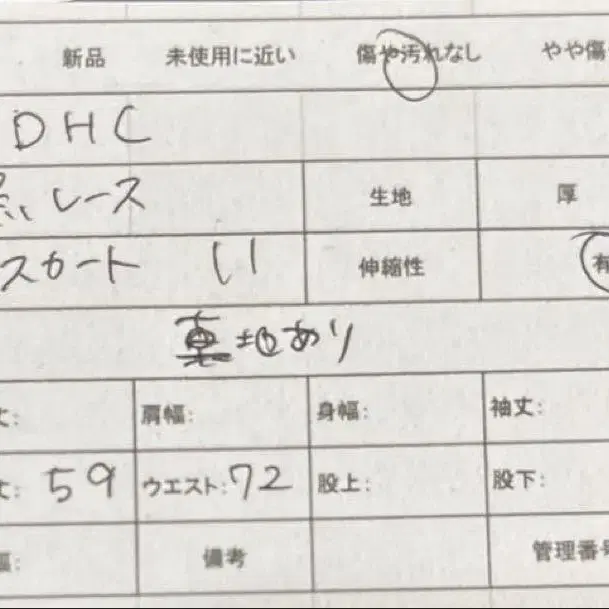 新品 未使用に近い 傷や汚れなし やや傷
DHC
レース 生地 厚
スカート い 伸縮性 有
裏地あり
丈: 肩幅: 身幅: 袖丈:
丈: 59 ウエスト: 72 股上: 股下:
幅: 備考 管理番号